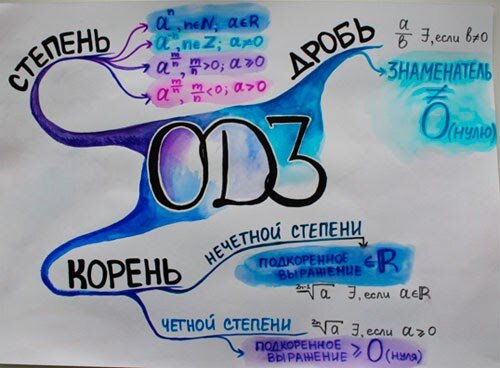 СТЕПЕНЬ
aⁿ, n∈N; a∈R
a⁻ⁿ, n∈Z; a≠0
a^(m/n), m/n>0; a≥0
a^(m/n), m/n<0; a>0
ДРОБЬ
a/в ∃, если в≠0
ЗНАМЕНАТЕЛЬ
≠
0(нулю)
ОДЗ
КОРЕНЬ
НЕЧЕТНОЙ СТЕПЕНИ
ПОДКОРЕННОЕ
ВЫРАЖЕНИЕ ∈ R
²ⁿ⁻¹√a ∃, если a∈R
ЧЕТНОЙ СТЕПЕНИ
²ⁿ√a ∃, если a≥0
ПОДКОРЕННОЕ
ВЫРАЖЕНИЕ ≥ 0(нуля)